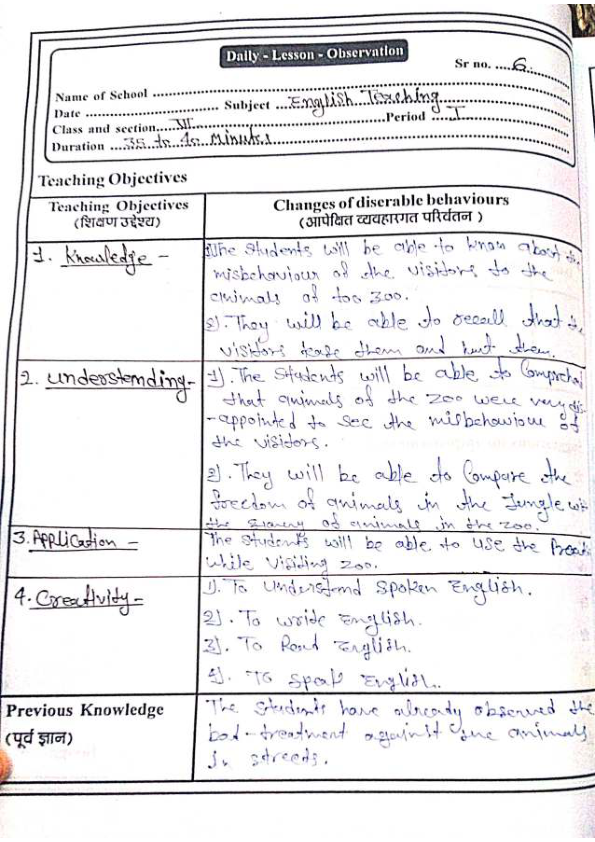 Daily - Lesson - Observation
Sr no. ....6.
Name of School
Date ................ Subject ...English Teaching
Class and section...VII................Period ...I
Duration ...35 to 40 Minutes
Teaching Objectives
Teaching Objectives
(शिक्षण उद्देश्य)
Changes of diserable behaviours
(आपेक्षित व्यवहारगत परिवर्तन )
1. Knowledge -
1) The Students will be able to know about the
misbehaviour of the visitors to the
animals of zoo.
2). They will be able to recall that the
visitors tease them and hurt them.
2. Understanding-
1). The Students will be able to
that animals of the zoo were very dis
-appointed to see the misbehaviour of
the visitors.
2). They will be able to Compare the
freedom of animals in the Jungle with
the slavery of animals in the zoo.
3. Application -
The students will be able to use the
while visiting zoo.
4. Creativity-
1). To Understand Spoken English.
2). To write English.
3). To Read English.
4). To Speak English.
Previous Knowledge
(पूर्व ज्ञान)
The students have already observed the
bad-treatment against the animals
in streets.